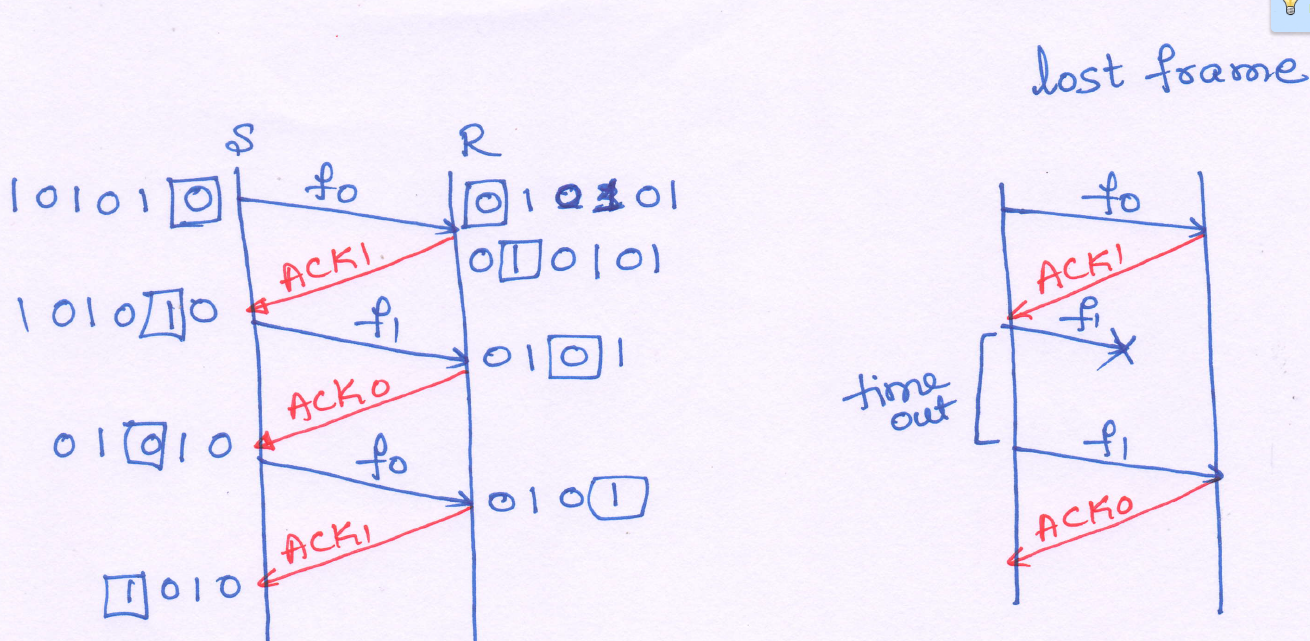 lost frame
S R
101010 f0 010101
ACK1 010101
101010 f1 0101
ACK0
01010 f0 0101
ACK1
1010
f0
ACK1
f1
time
out
f1
ACK0